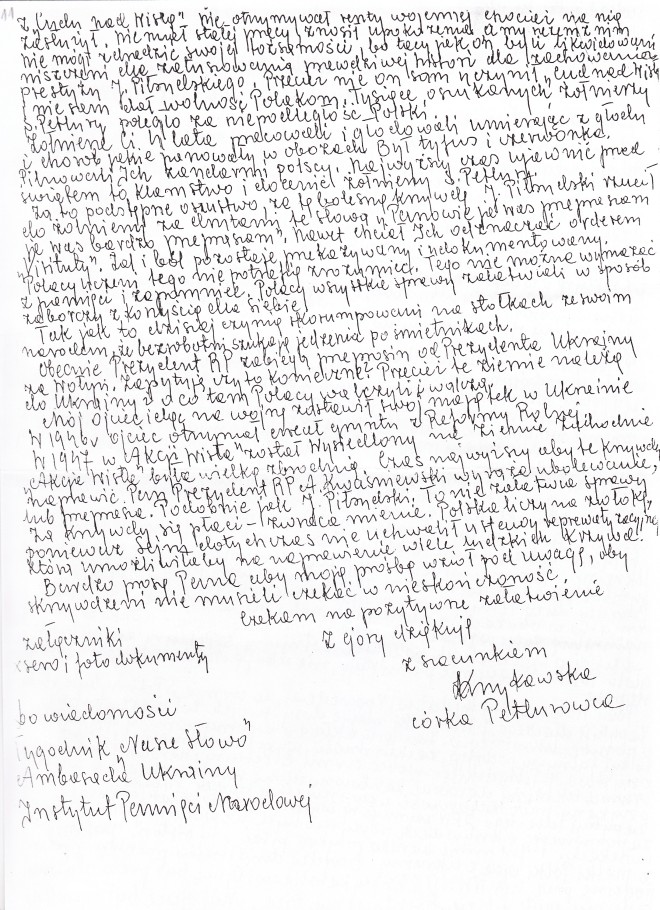 11
z "Cudu nad Wisłą" nie otrzymywał renty wojennej chociei na nią
zasłużył, nie miał stałej pracy, znosił upokorzenia a my razem z nim
nie mógł zdradzić swojej tożsamości, bo tacy jak on byli likwidowani
niszczeni dla zatuszowania prawdziwej historii dla zachowania
prestiżu J. Piłsudskiego. Przecież nie on sam uczynił "cud nad Wisłą
i nie sam dał wolność Polakom. Tysiące oszukanych żołnierzy
S. Petlury poległo za niepodległość Polski.
Żołnierze Ci lata pracowali i głodowali umierając z głodu
i chorób jakie panowały w obozach Był tyfus i czerwonka.
Pilnowali Ich żandarmi polscy. Najwyższy czas ujawnić przed
światem to kłamstwo i docenić żołnierzy S. Petlury.
Za to podstępne oszustwo, za tę bolesną krzywdę J. Piłsudski rzucił
do żołnierzy za drutami te słowa "Panowie ja was przepraszam
ja was bardzo przepraszam", nawet chciał Ich odznaczać orderem
"Virtuti". Żal i ból pozostaje przekazywany i udokumentowany.
Polacy uczeni tego nie potrafią zrozumieć. Tego nie można wymazać
z pamięci i zapomnieć. Polacy wszystkie sprawy załatwiali w sposób
zaborczy z korzyścią dla siebie.
Tak jak to dzisiaj czynią skorumpowani na stołkach ze swoim
narodem, że bezrobotni szukają jedzenia po śmietnikach.
Obecnie Prezydent RP zabiega przeprosin od Prezydenta Ukrainy
za Wołyń. Zapytuję czy to konieczne? Przecież te ziemie należą
do Ukrainy i o co tam Polacy walczyli i walczą.
Mój Ojciec idąc na wojnę zostawił swój majątek w Ukrainie
W 1946r ojciec otrzymał areał gruntu z Reformy Rolnej
W 1947 w "Akcji Wisła" został Wysiedlony na Ziemie Zachodnie
"Akcja Wisła" była wielką zbrodnią. Czas najwyższy aby te krzywdy
naprawić. Pan Prezydent RP A. Kwaśniewski wyraża ubolewanie,
lub przeprasza. Podobnie jak J. Piłsudski. To nie załatwia sprawy
Za krzywdy się płaci – zwraca mienie. Polska liczy na zwłokę,
ponieważ Sejm dotychczas nie uchwalił ustawy reprywatyzacyjnej
który umożliwiłaby na naprawienie wiele ludzkich krzywd.
Bardzo proszę Pana aby moją prośbę wziął pod uwagę, aby
skrzywdzeni nie musieli czekać w nieskończoność
Czekam na pozytywne załatwienie
Z góry dziękuję
z szacunkiem
córka Petlurowca
załączniki
ksero i foto dokumenty
Do wiadomości
Tygodnik "Nasze Słowo"
Ambasada Ukrainy
Instytut Pamięci Narodowej